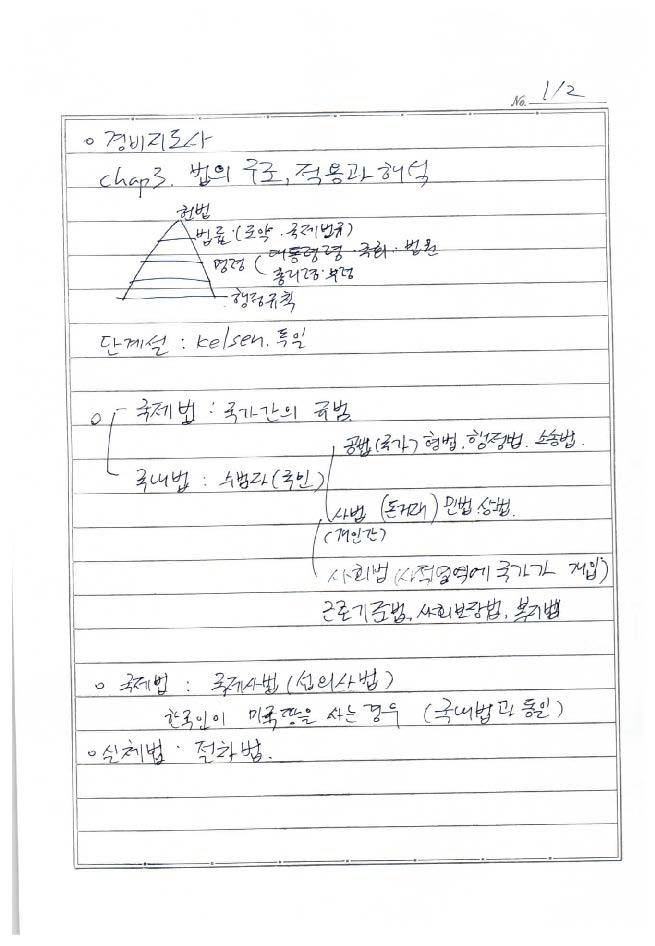 No. 1/2
경비지도사
chap3. 법의 구조, 적용과 해석
헌법
법률 (조약·국제법규)
명령 (대통령령·국회·법원
총리령·부령
행정규칙
단계설 : Kelsen. 독일
국제법 : 국가간의 규범
공법(국가) 형법. 행정법. 소송법.
국내법 : 수범자(국민)
사법 (돈거래) 민법.상법.
(개인간)
사회법 (사적영역에 국가가 개입)
근로기준법, 사회보장법, 복지법
국제법 : 국제사법 (섭외사법)
한국인이 미국땅을 사는 경우 (국내법과 동일)
실체법·절차법.